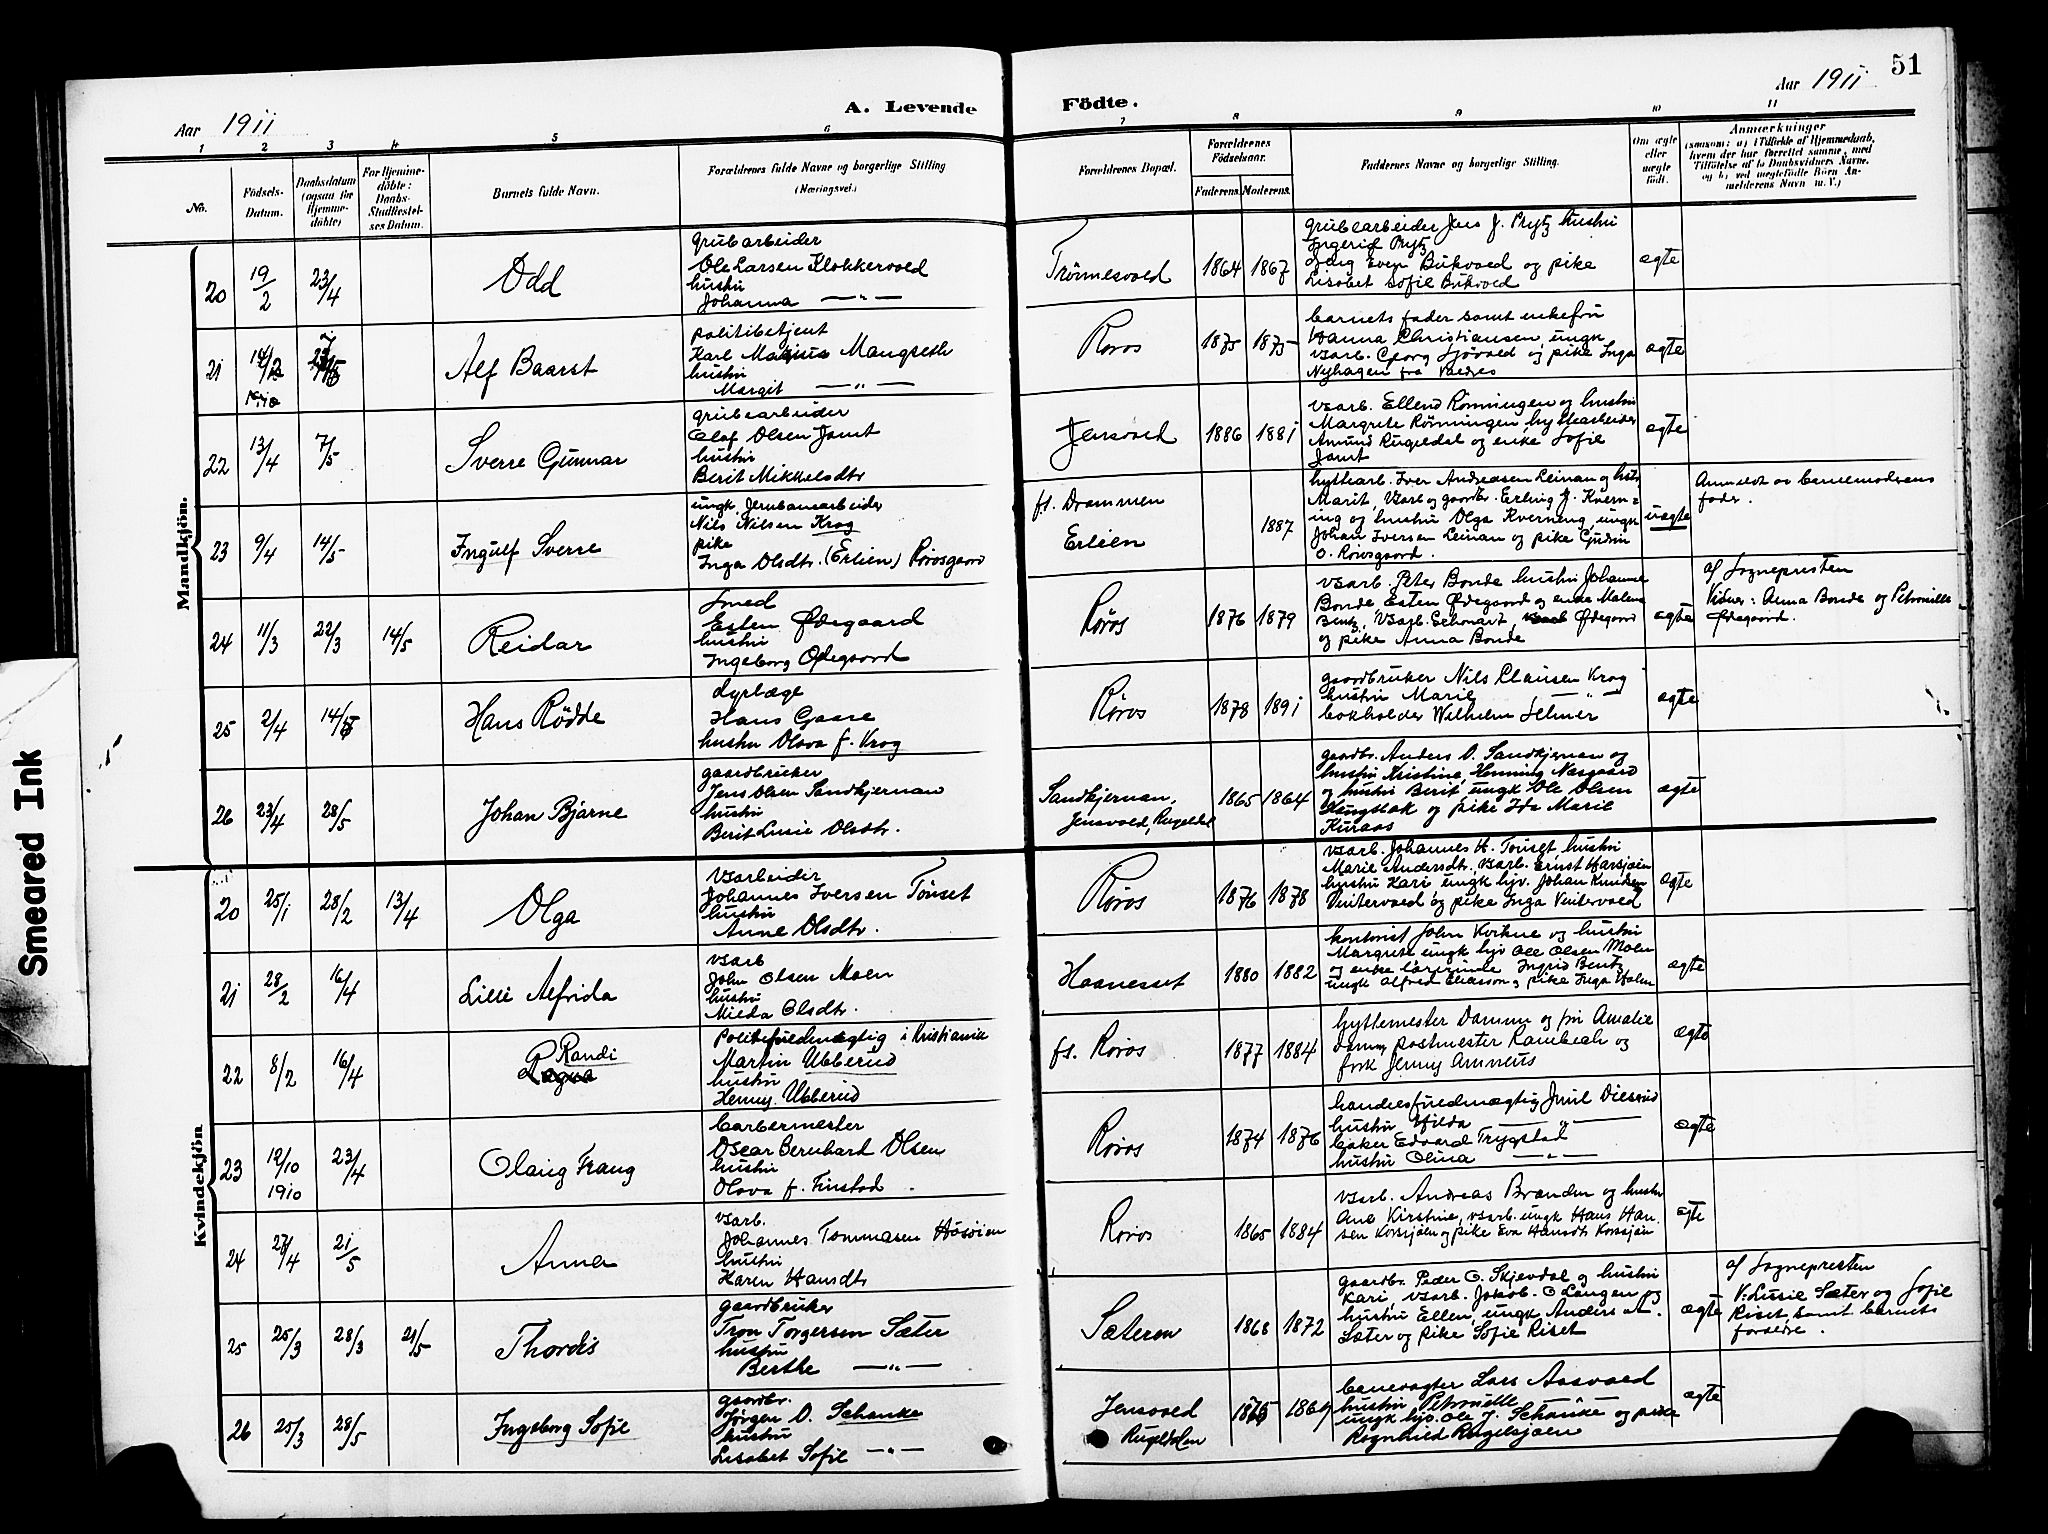 51
Aar 1911
A. Levende
Födte.
Aar 1911
1 2 3 4 5 6 7 8 9 10 11
No.
Födsels-Datum.
Daabsdatum (ogsaa for Hjemmedöbte)
For Hjemmedöbte: Daabs-Stadfæstelses Datum.
Barnets fulde Navn.
Forældrenes fulde Navne og borgerlige Stilling
(Næringsvei.)
Forældrenes Bopæl.
Forældrenes Födselsaar.
Faderens. Moderens.
Faddernes Navne og borgerlige Stilling.
Om ægte eller uægte födt.
Anmærkninger
(saasom: a) i Tilfælde af Hjemmedaab, hvem der har forrettet samme, med Tilföielse af to Daabsvidners Navne, og b) ved uægtefödte Börn Anmelderens Navn m. V.)
Mandkjön.
20 19/2 23/4 Odd
grubearbeider
Ole Larsen Klokkervold
hustru
Johanna —"—
Trönnesvold 1864 1867
grubearbeider Jens J. Prytz hustru
Ingerid Prytz
gaardbr. Even Bukvold og pike
Lisabet Sofie Bukvold
ægte
21 14/12 1910 Alf Baarst
politibetjent
Karl Marius Mangseth
hustru
Margit —"—
Røros 1875 1875
barnets fader samt enkefru
Hanna Christiansen, ungk
vsarb. Georg Sjövold og pike Inga
Nyhagen fra Valdres
ægte
22 13/4 7/5 Sverre Gunnar
grubearbeider
Olaf Olsen Jamt
hustru
Berit Mikkelsdtr
Jensvold 1886 1881
vsarb. Ellend Rønningen og hustru
Margrete Rønningen hyttearbeider
Amund Rugeldal og enke Sofie
Jamt
ægte
23 9/4 14/5 Ingulf Sverre
ungk. Jernbanearbeider
Nils Nilsen Krog
pike
Inga Olsdtr. (Erlien) Rørosgaard
fs. Drammen
Erlien
1887
hyttearb. Iver Andreasen Leinan og hustr
Marit, vsarb og gaardbr. Erling J. Kvern=
eng og hustru Olga Kverneng, ungk
Johan Iversen Leinan og pike Gudrun
O. Rørosgaard.
uægte
Anmeldt av barnemoderens
fader.
24 11/3 22/3 14/5 Reidar
Smed
Esten Ødegaard
hustru
Ingeborg Ødegaard
Røros 1876 1879
vsarb. Peter Bonde hustru Johanne
Bonde, Esten Ødegaard og enke Malena
Bentz, vsarb. Edvart Ødegaard
og pike Anna Bonde
ægte
af Sognepresten
Vidner: Anna Bonde og Petronille
Ødegaard.
25 2/4 14/5 Hans Rödde
dyrlæge
Hans Gaare
hustru Olava f. Krog
Røros 1878 1891
gaardbruker Nils Clausen Krog
hustru Marie —"—
bokholder Wilhelm Selmer
ægte
26 23/4 28/5 Johan Bjarne
gaardbruker
Jens Olsen Sandkjernan
hustru
Berit Lusie Olsdtr.
Sandkjernan,
Jensvold, Rugeldal
1865 1864
gaardbr. Anders O. Sandkjernan og
hustru Kristine, Henning Næsgaard
og hustru Berit, ungk Ole Olsen
Langbak og pike Ida Marie
Kuraas
ægte
Kvindekjön
20 25/1 28/2 13/4 Olga
vsarbeider
Johannes Iversen Tönset
hustru
Anne Olsdtr.
Røros 1876 1878
vsarb. Johannes H. Tönset, hustru
Marie Andersdtr, vsarb. Ernst Harsjøen
hustru Kari, ungk hjv. Johan Knudsen
Vintervold og pike Inga Vintervold
ægte
21 28/2 16/4 Lille Alfrida
vsarb
John Olsen Moen
hustru
Milda Olsdtr.
Haanesset 1880 1882
kontorist John Kvikne og hustru
Margrete ungk hjv Ole Olsen Moen
og enke lærerinde Ingrid Bentz
ungk Alfred Eliasson og pike Inga Holm
ægte
22 8/2 16/4 Randi
Ragna
Politifuldmægtig i Kristiania
Martin Ubberud
hustru
Henny Ubberud
fs. Røros 1877 1884
hyttemester Damm og fru Amalie
Damm, postmester Rambech og
frøk Jenny Amneus
ægte
23 12/10 1910 23/4 Olaug Fraug
barbermester
Oscar Bernhard Olsen
hustru
Olava f. Finstad.
Røros 1874 1876
handelsfuldmægtig Juul Diesrud
hustru Hilda —"—
baker Edvard Trygstad
hustru Olina —"—
ægte
24 27/4 21/5 Anna
vsarb.
Johannes Tommasen Husöien
hustru
Karen Hansdtr
Røros 1865 1884
vsarb. Andreas Branden og hustru
Ane Kirstine, vsarb. ungk Hans Han
sen Korssjøen og pike Eva Hansdtr Korssjøen
ægte
25 25/3 28/3 21/5 Thordis
gaardbruker
Tron Torgersen Sæter
hustru
Berthe —"—
Sæteren 1868 1872
gaardbr. Peder O. Skjevdal og hustru
Kari, vsarb. Jakob O Langen og
hustru Ellen, ungk Anders A.
Sæter og pike Sofie Riset
ægte
af Sognepresten
V: Lusie Sæter og Sofie
Riset, samt barnets
forældre.
26 25/3 28/5 Ingeborg Sofie
gaardbr.
Jørgen O. Schanke
hustru
Lisabet Sofie —"—
Jensvold
Rugeldalen
1865 1869
banevogter Lars Aasvold
hustru Petronille
ungk hjv. Ole J. Schanke og pike
Ragnhild Rugelsjøen
ægte
Smeared Ink